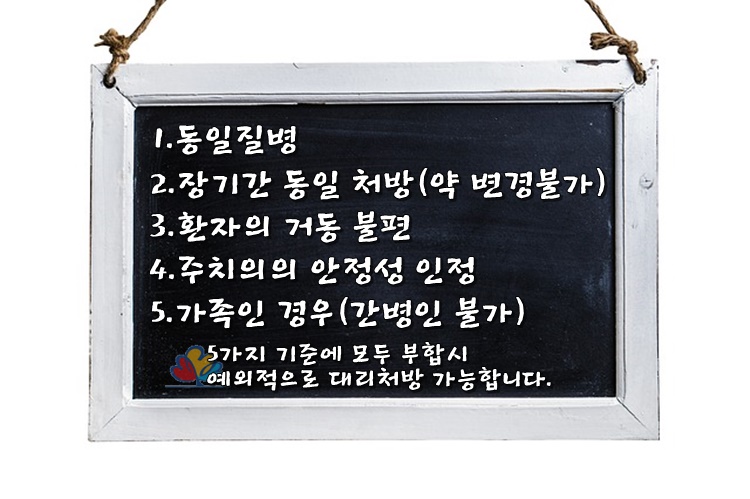 1.동일질병
2.장기간 동일 처방(약 변경불가)
3.환자의 거동 불편
4.주치의의 안정성 인정
5.가족인 경우(간병인 불가)
5가지 기준에 모두 부합시
예외적으로 대리처방 가능합니다.